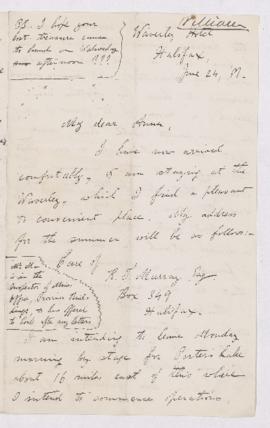 William
P.S. I hope your
lost treasure came
to hand on Saturday
afternoon ???
Waverley Hotel
Halifax,
June 24, '97.
My dear Anna,
I have now arrived
comfortably, & am staying at the
Waverley, which I find a pleasant
& convenient place. My address
for the summer will be as follows:-
Care of
R. T. Murray, Esq
Box 349
Halifax.
Mr. M.
is in the
Inspector of Mines
Office,
& has offered
to look after my letters
I am intending to leave Monday
morning by stage for Porters Lake
about 16 miles east of this where
I intend to commence operations